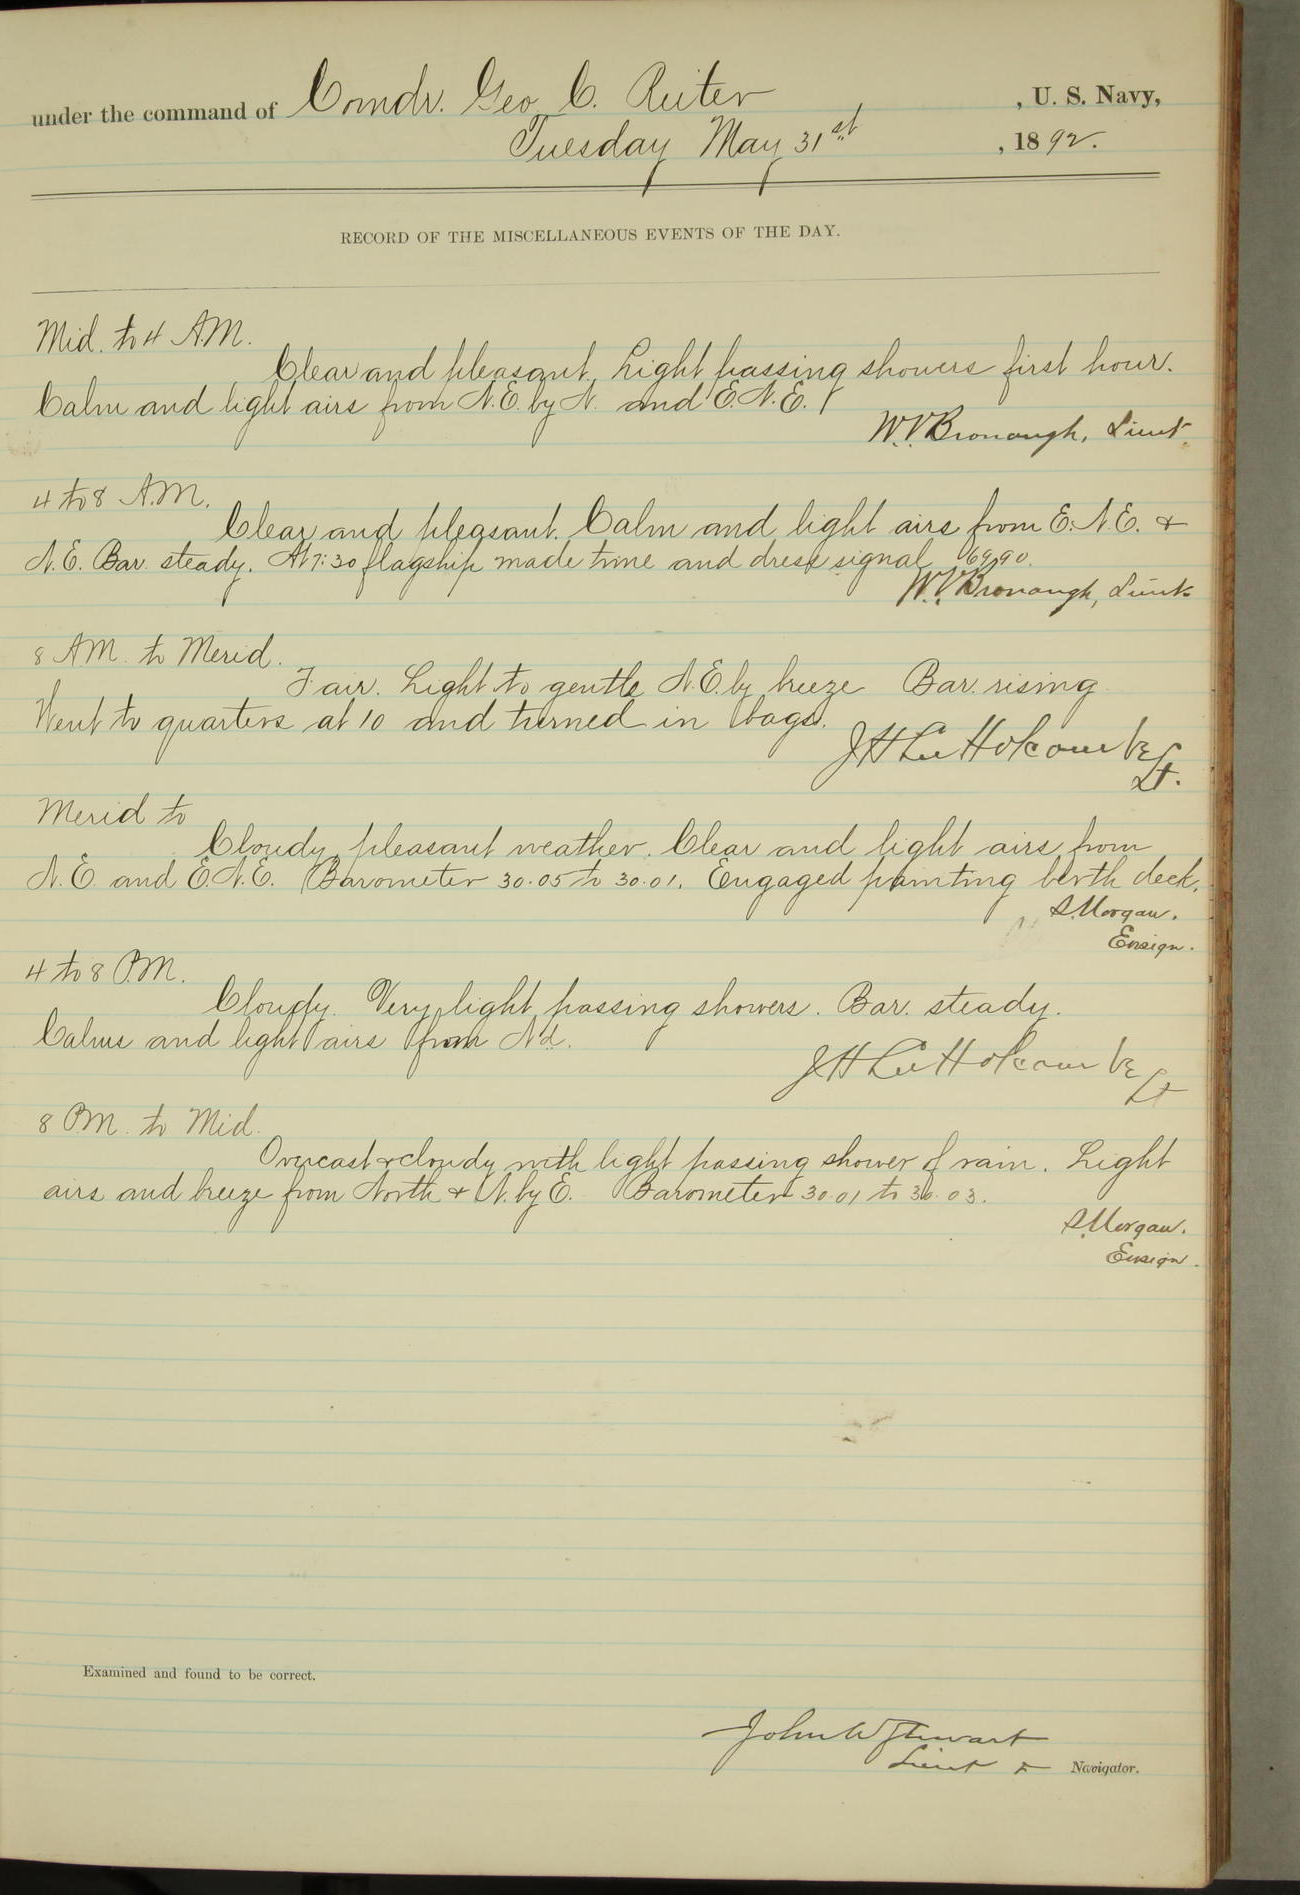 under the command of Comdr. Geo. C. Reiter, U. S. Navy,
Tuesday May 31st, 1892.
RECORD OF THE MISCELLANEOUS EVENTS OF THE DAY.
Mid. to 4 A.M.
Clear and pleasant. Light passing showers first hour.
Calm and light airs from N.E. by N. and E.N.E.
W.V. Bronaugh, Lieut.
4 to 8 A.M.
Clear and pleasant. Calm and light airs from E.N.E. &
N.E. Bar. steady. At 7:30 flagship made time and dress signal 6990.
W.V. Bronaugh, Lieut.
8 AM. to Merid.
Fair. Light to gentle N.E. by breeze Bar. rising
Went to quarters at 10 and turned in bags.
J H Lee Holcombe
Lt.
Merid to
Cloudy pleasant weather. Clear and light airs from
N.E. and E.N.E. Barometer 30.05 to 30.01. Engaged painting berth deck.
S. Morgan.
Ensign.
4 to 8 P.M.
Cloudy. Very light passing showers. Bar. steady.
Calms and light airs from Nd.
J H Lee Holcombe
Lt
8 P.M. to Mid.
Overcast & cloudy with light passing shower of rain. Light
airs and breeze from North & N. by E. Barometer 30.01 to 30.03.
S. Morgan.
Ensign.
Examined and found to be correct.
John W Stewart
Lieut & Navigator.